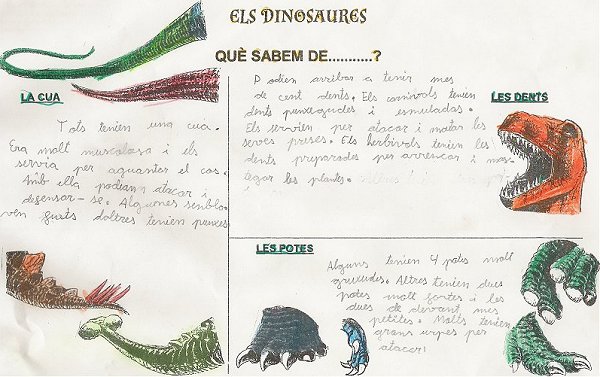 ELS DINOSAURES
QUÈ SABEM DE...........?
LA CUA
Tots tenien una cua.
Era molt musculosa i els
servia per aguantar el cos.
Amb ella podien atacar i
defensar-se. Algunes sembla-
ven fuets d'altres tenien punxes
Podien arribar a tenir mes
de cent dents. Els carnívols tenien
dents punxegudes i esmulades.
Els servien per atacar i matar les
seves preses. Els herbívols tenien les
dents preparades per arrencar i mas-
tegar les plantes.
LES DENTS
LES POTES
Alguns tenien 4 potes molt
gruixudes. Altres tenien dues
potes molt fortes i les
dues de devant mes
petites. Molts tenien
grans urpes per
atacar.